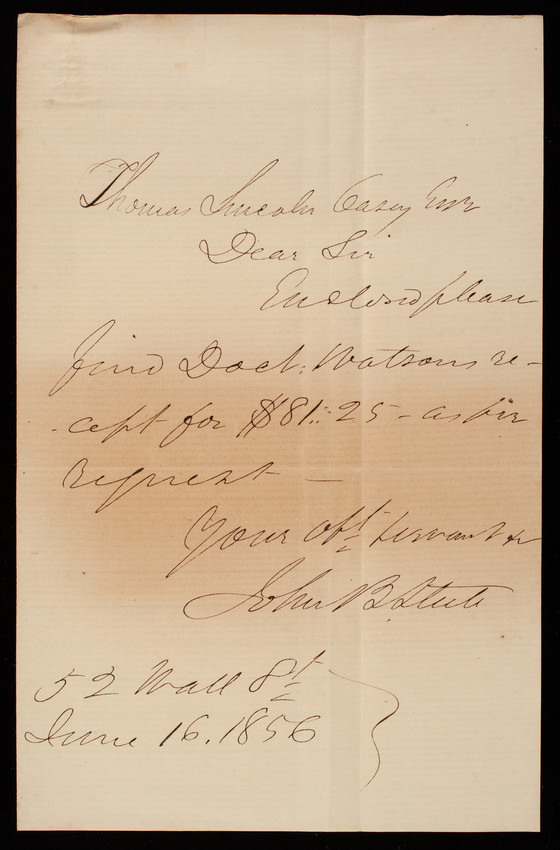 Thomas Lincoln Casey Esqr
Dear Sir
Enclosed please
find Doct: Watsons re-
-cept for $81.:25 - as per
request —
Your obt servant &c
John B Steele
52 Wall St
June 16. 1856